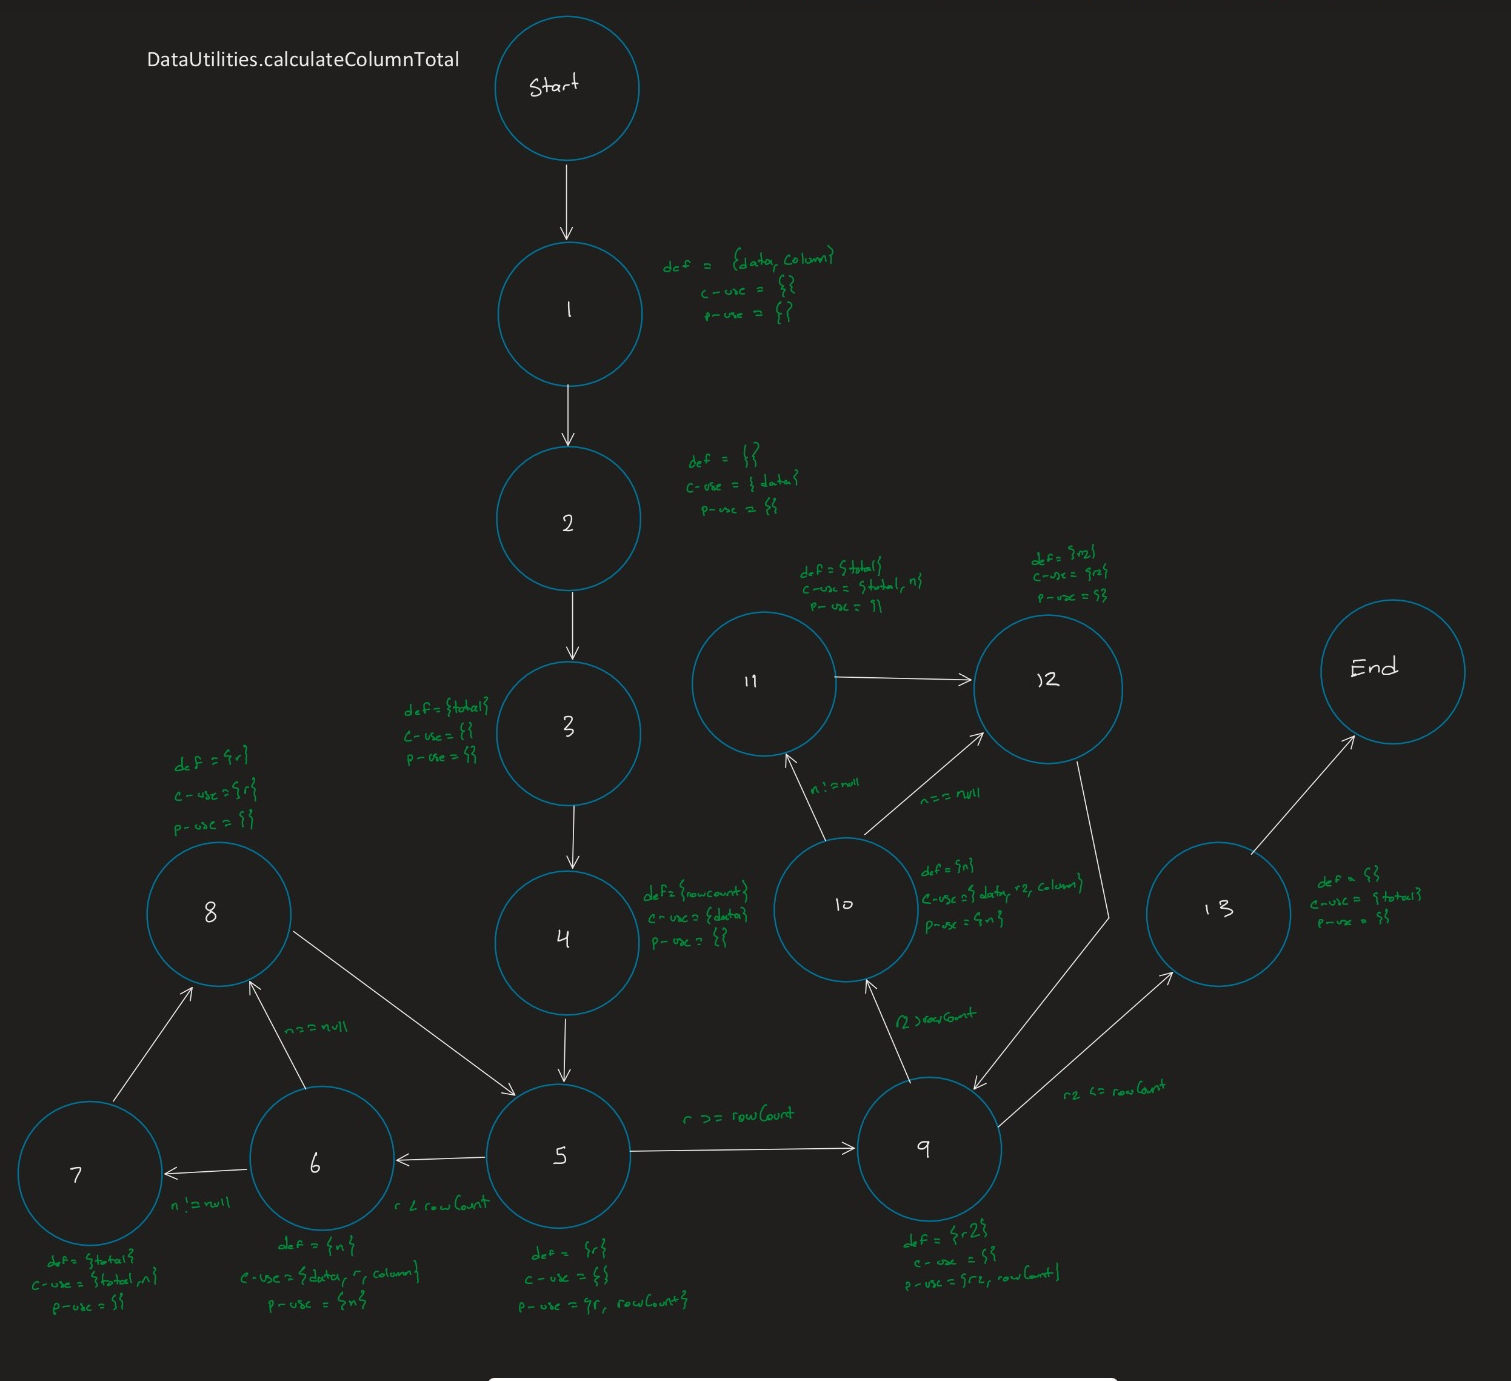 DataUtilities.calculateColumnTotal
Start
1
def = {data, column}
c-use = {}
p-use = {}
2
def = {}
c-use = {data}
p-use = {}
3
def = {total}
c-use = {}
p-use = {}
4
def = {rowcount}
c-use = {data}
p-use = {}
5
def = {r}
c-use = {}
p-use = {r, rowCount}
r < rowCount
6
def = {n}
c-use = {data, r, column}
p-use = {n}
n != null
7
def = {total}
c-use = {total, n}
p-use = {}
n == null
8
def = {r}
c-use = {r}
p-use = {}
r >= rowCount
9
def = {r2}
c-use = {}
p-use = {r2, rowCount}
r2 > rowCount
10
def = {n}
c-use = {data, r2, column}
p-use = {n}
n != null
n == null
11
def = {total}
c-use = {total, n}
p-use = {}
12
def = {r2}
c-use = {r2}
p-use = {}
r2 <= rowCount
13
def = {}
c-use = {total}
p-use = {}
End